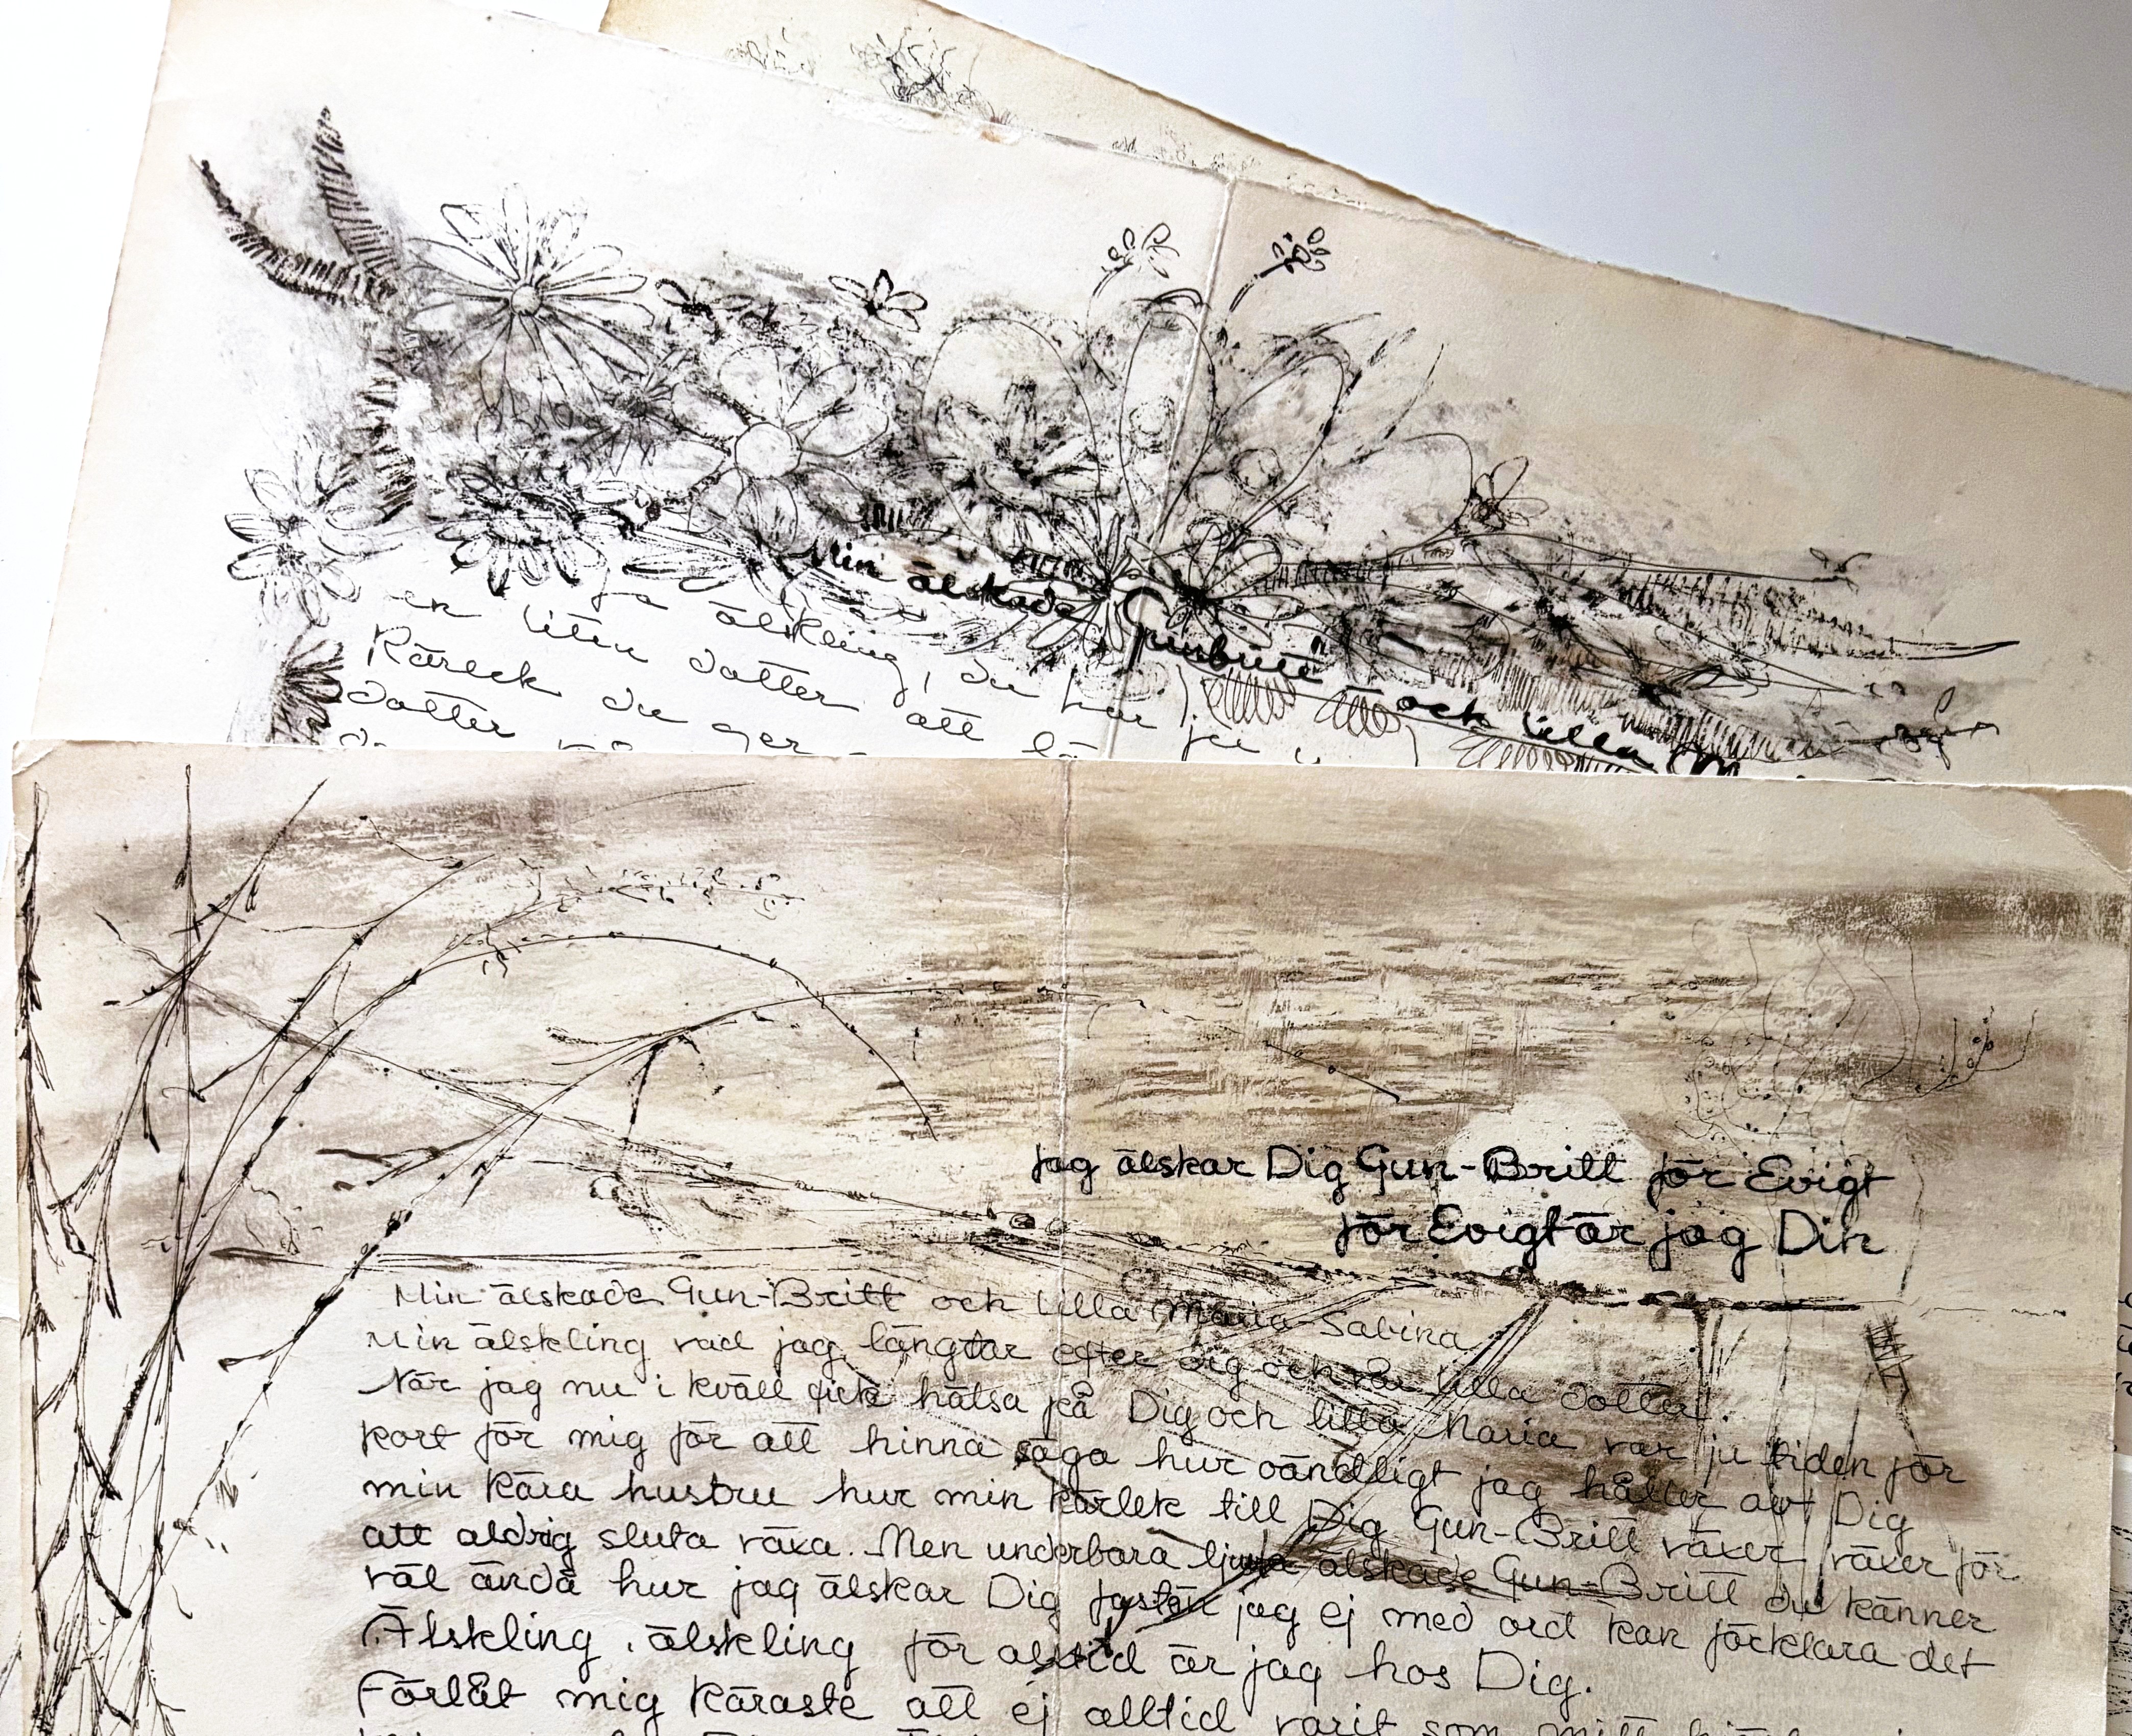 Min älskade Gunbritt och lilla
ja älskling, du har ju
en liten dotter att
Käreck du ger
dotter
Jag älskar Dig Gun-Britt för Evigt
för Evigt är jag Din
Min älskade Gun-Britt och lilla Maria-Sabina
Min älskling vad jag längtar efter dig och vår lilla dotter.
När jag nu i kväll fick hälsa på Dig och lilla Maria var ju tiden för
kort för mig för att hinna säga hur oändligt jag håller av Dig
min kära hustru hur min kärlek till Dig Gun-Britt växer växer för
att aldrig sluta växa. Men underbara ljuva älskade Gun-Britt du känner
väl ändå hur jag älskar Dig fastän jag ej med ord kan förklara det
Älskling, älskling för alltid är jag hos Dig.
Förlåt mig käraste att ej alltid varit som mitt